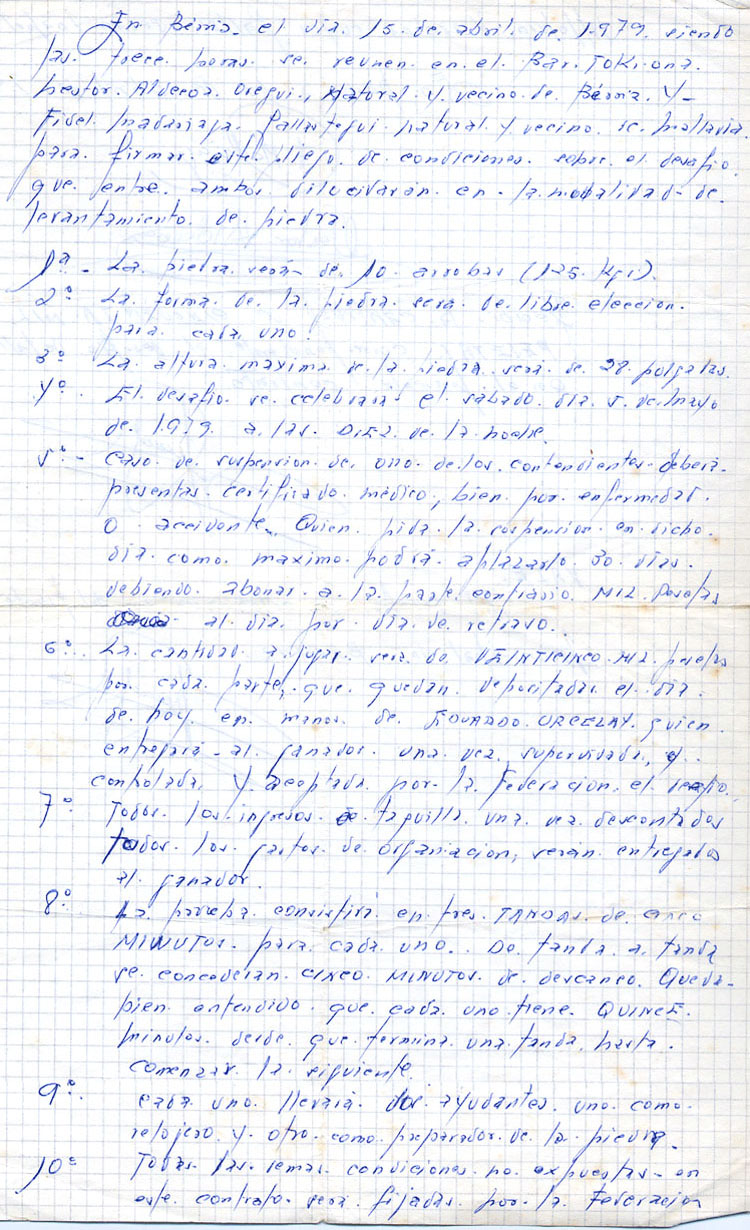 En Bérriz el día 15 de abril de 1.979 siendo
las trece horas se reunen en el Bar TOKI-ONA
Nestor Aldecoa Oregui, Natural y vecino de Bérriz y
Fidel Madariaga Gallastegui natural y vecino de Mallavia
para firmar este pliego de condiciones sobre el desafio
que entre ambos dilucidarán en la modalidad de
levantamiento de piedra.
1ª - La piedra será de 10 arrobas (125 Kgs).
2º La forma de la piedra sera de libre eleccion
para cada uno.
3º La altura maxima de la piedra será de 28 pulgadas.
4º El desafio se celebrará el sábado día 5 de Mayo
de 1.979 a las DIEZ de la noche.
5º - Caso de suspension de uno de los contendientes deberá
presentar certificado médico, bien por enfermedad
o accidente. Quien pida la suspension en dicho
día como maximo podrá aplazarlo 30 días
debiendo abonar a la parte contrario MIL Pesetas
al día por día de retraso.
6º La cantidad a jugar sera de VEINTICINCO MIL pesetas
por cada parte, que quedan depositadas el día
de hoy en manos de EDUARDO URCELAY quien
entregará al ganador una vez supervisada, y
controlada y aceptada por la Federacion el
7º Todos los ingresos de taquilla una vez descontados
todos los gastos de organiacion, seran entregados
al ganador.
8º La prueba consistirá en tres TANDAS de CINCO
MINUTOS para cada uno. De tanda a tanda
se concederan CINCO MINUTOS de descanso. Queda
bien entendido que cada uno tiene QUINCE
minutos desde que termina una tanda hasta
comenzar la siguiente.
9º Cada uno llevará dos ayudantes uno como
relojero y otro como preparador de la piedra.
10º Todas las demas condiciones no expuestas en
este contrato sera fijadas por la Federacion